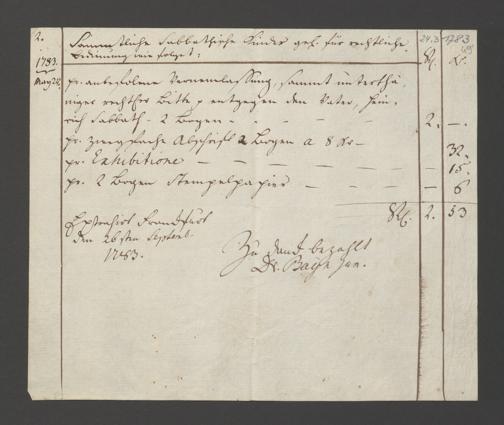 2.
24.3 1783
Sammtliche Sabbathische Kinder geh. für rechtliche
Bedinung wie folget:
Rf. Xr.
1783.
May 28. pr. anbefolene Vernemlassung, sammt unterthä-
niger rechtlher Bitte p entgegen den Vater, Hein-
rich Sabbath - 2 Bogen - - - - 2. -.
pr. zweyfache Abschrift 2 Bogen a 8 Xr - 32.
pr. Exhibitione - - - - - - 15.
pr. 2 Bogen Stempelpapier - - - - 6
Rf. 2. 53
Frankfurt
den 26sten Septemb.
1783.
Zu Dank bezahlt
Dr. jun.